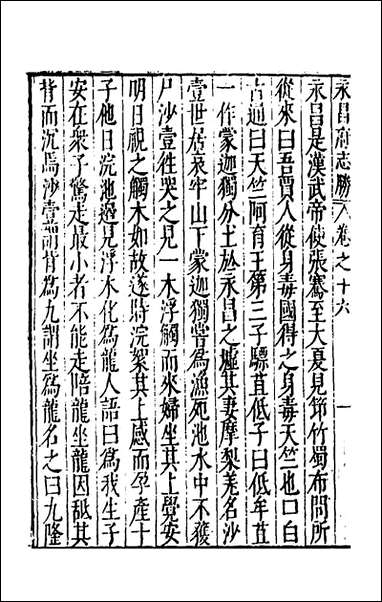 永昌府志勝 卷之十六 一
永昌是漢武帝使張騫至大夏見筇竹蜀布問所
從來曰吾賈人從身毒國得之身毒天竺也口白
古通曰天竺阿育王第三子驃苴低子曰低牟苴
一作蒙迦獨分土於永昌之墟其妻摩梨羌名沙
壹世居哀牢山下蒙迦獨嘗為漁死池水中不獲
尸沙壹徃哭之見一木浮觸而來婦坐其上覺安
明日視之觸木如故遂時浣絮其上感而孕產十
子他日浣池邊見浮水化為龍人語曰為我生子
安在衆子驚走最小者不能走陪龍坐龍因舐其
背而沉焉沙壹謂背為九謂坐為龍名之曰九隆